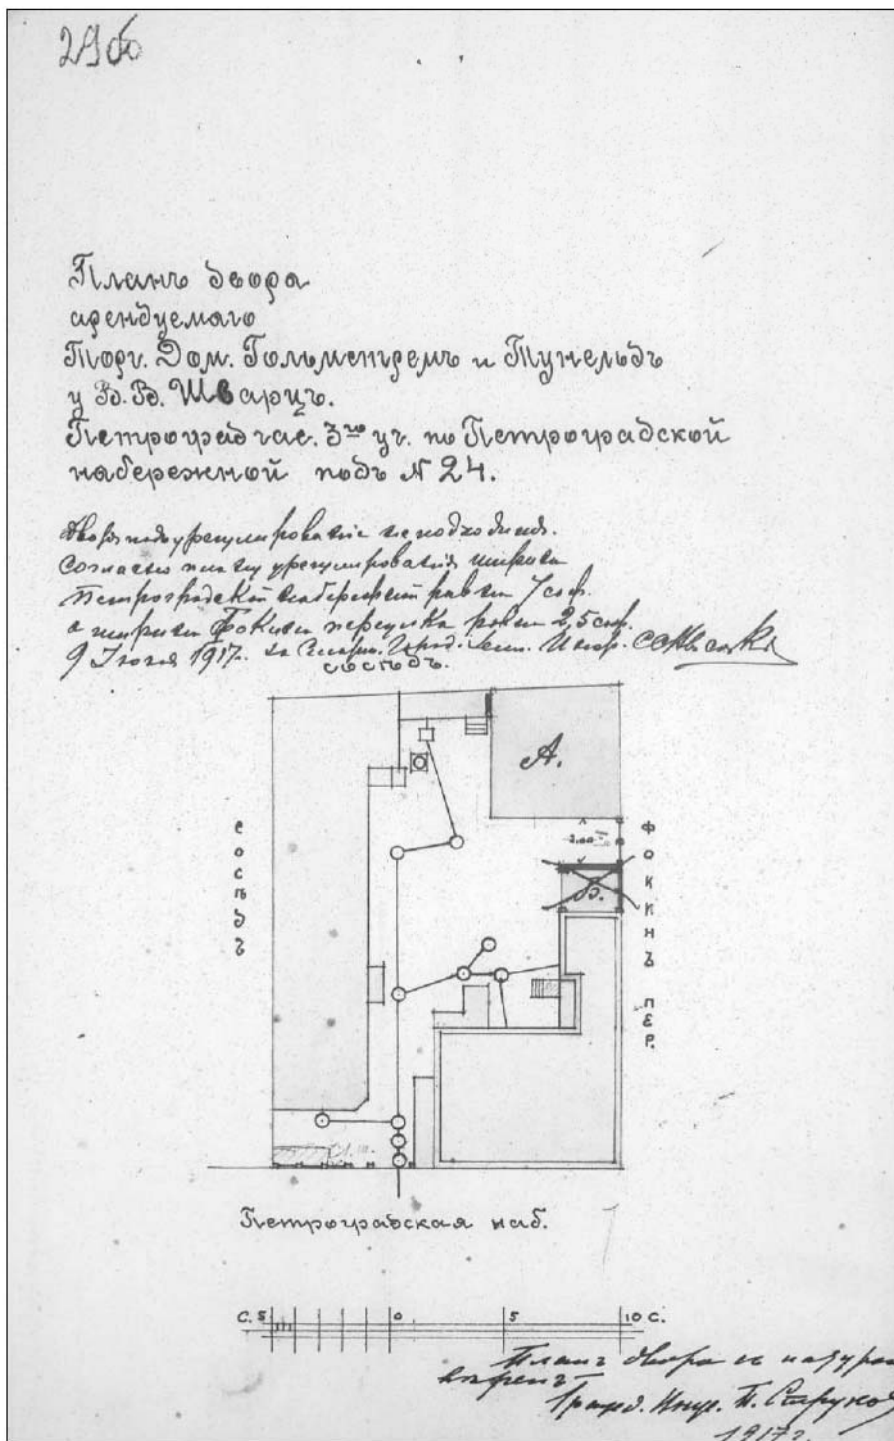 Планъ двора
арендуемаго
Торг. Дом. Гольмстремъ и Тунельдъ
у В. В. Шварцъ.
Петроград час. 3го уч. по Петроградской
набережной подъ № 24.
Дворъ подъ урегулированіе не подходитъ.
Согласно плану урегулированія ширина
Петроградской набережной равна 7 саж.
а ширина Фокина переулка равна 2,5 саж.
9 1917г. за Инж.
сосѣдъ.
А.
2.00
сосѣдъ
Б.
Фокинъ пер.
Петроградская наб.
С. 5 0 5 10 С.
Планъ двора съ натурою
вѣренъ
Гражд. Инж.
1917 г.